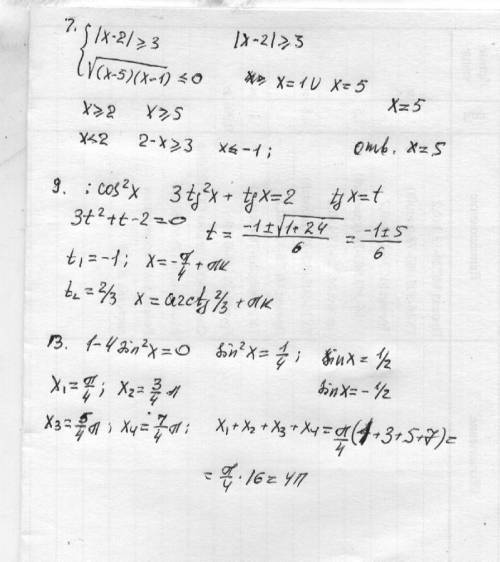 7. { |x-2| ≥ 3 |x-2| ≥ 3
√(x-5)(x-1) ≤ 0 x = 1 ∪ x = 5
x = 5
x ≥ 2 x ≥ 5
x < 2 2-x ≥ 3 x ≤ -1; отв. x = 5
9. : cos²x 3tg²x + tgx = 2 tgx = t
3t² + t - 2 = 0 t = (-1 ± √(1+24))/6 = (-1 ± 5)/6
t₁ = -1; x = -π/4 + πk
t₂ = 2/3 x = arctg 2/3 + πk
13. 1-4sin²x = 0 sin²x = 1/4; sinx = 1/2
x₁ = π/4; x₂ = 3/4 π sinx = -1/2
x₃ = 5/4 π; x₄ = 7/4 π; x₁ + x₂ + x₃ + x₄ = π/4 (1+3+5+7) =
= π/4 · 16 = 4π